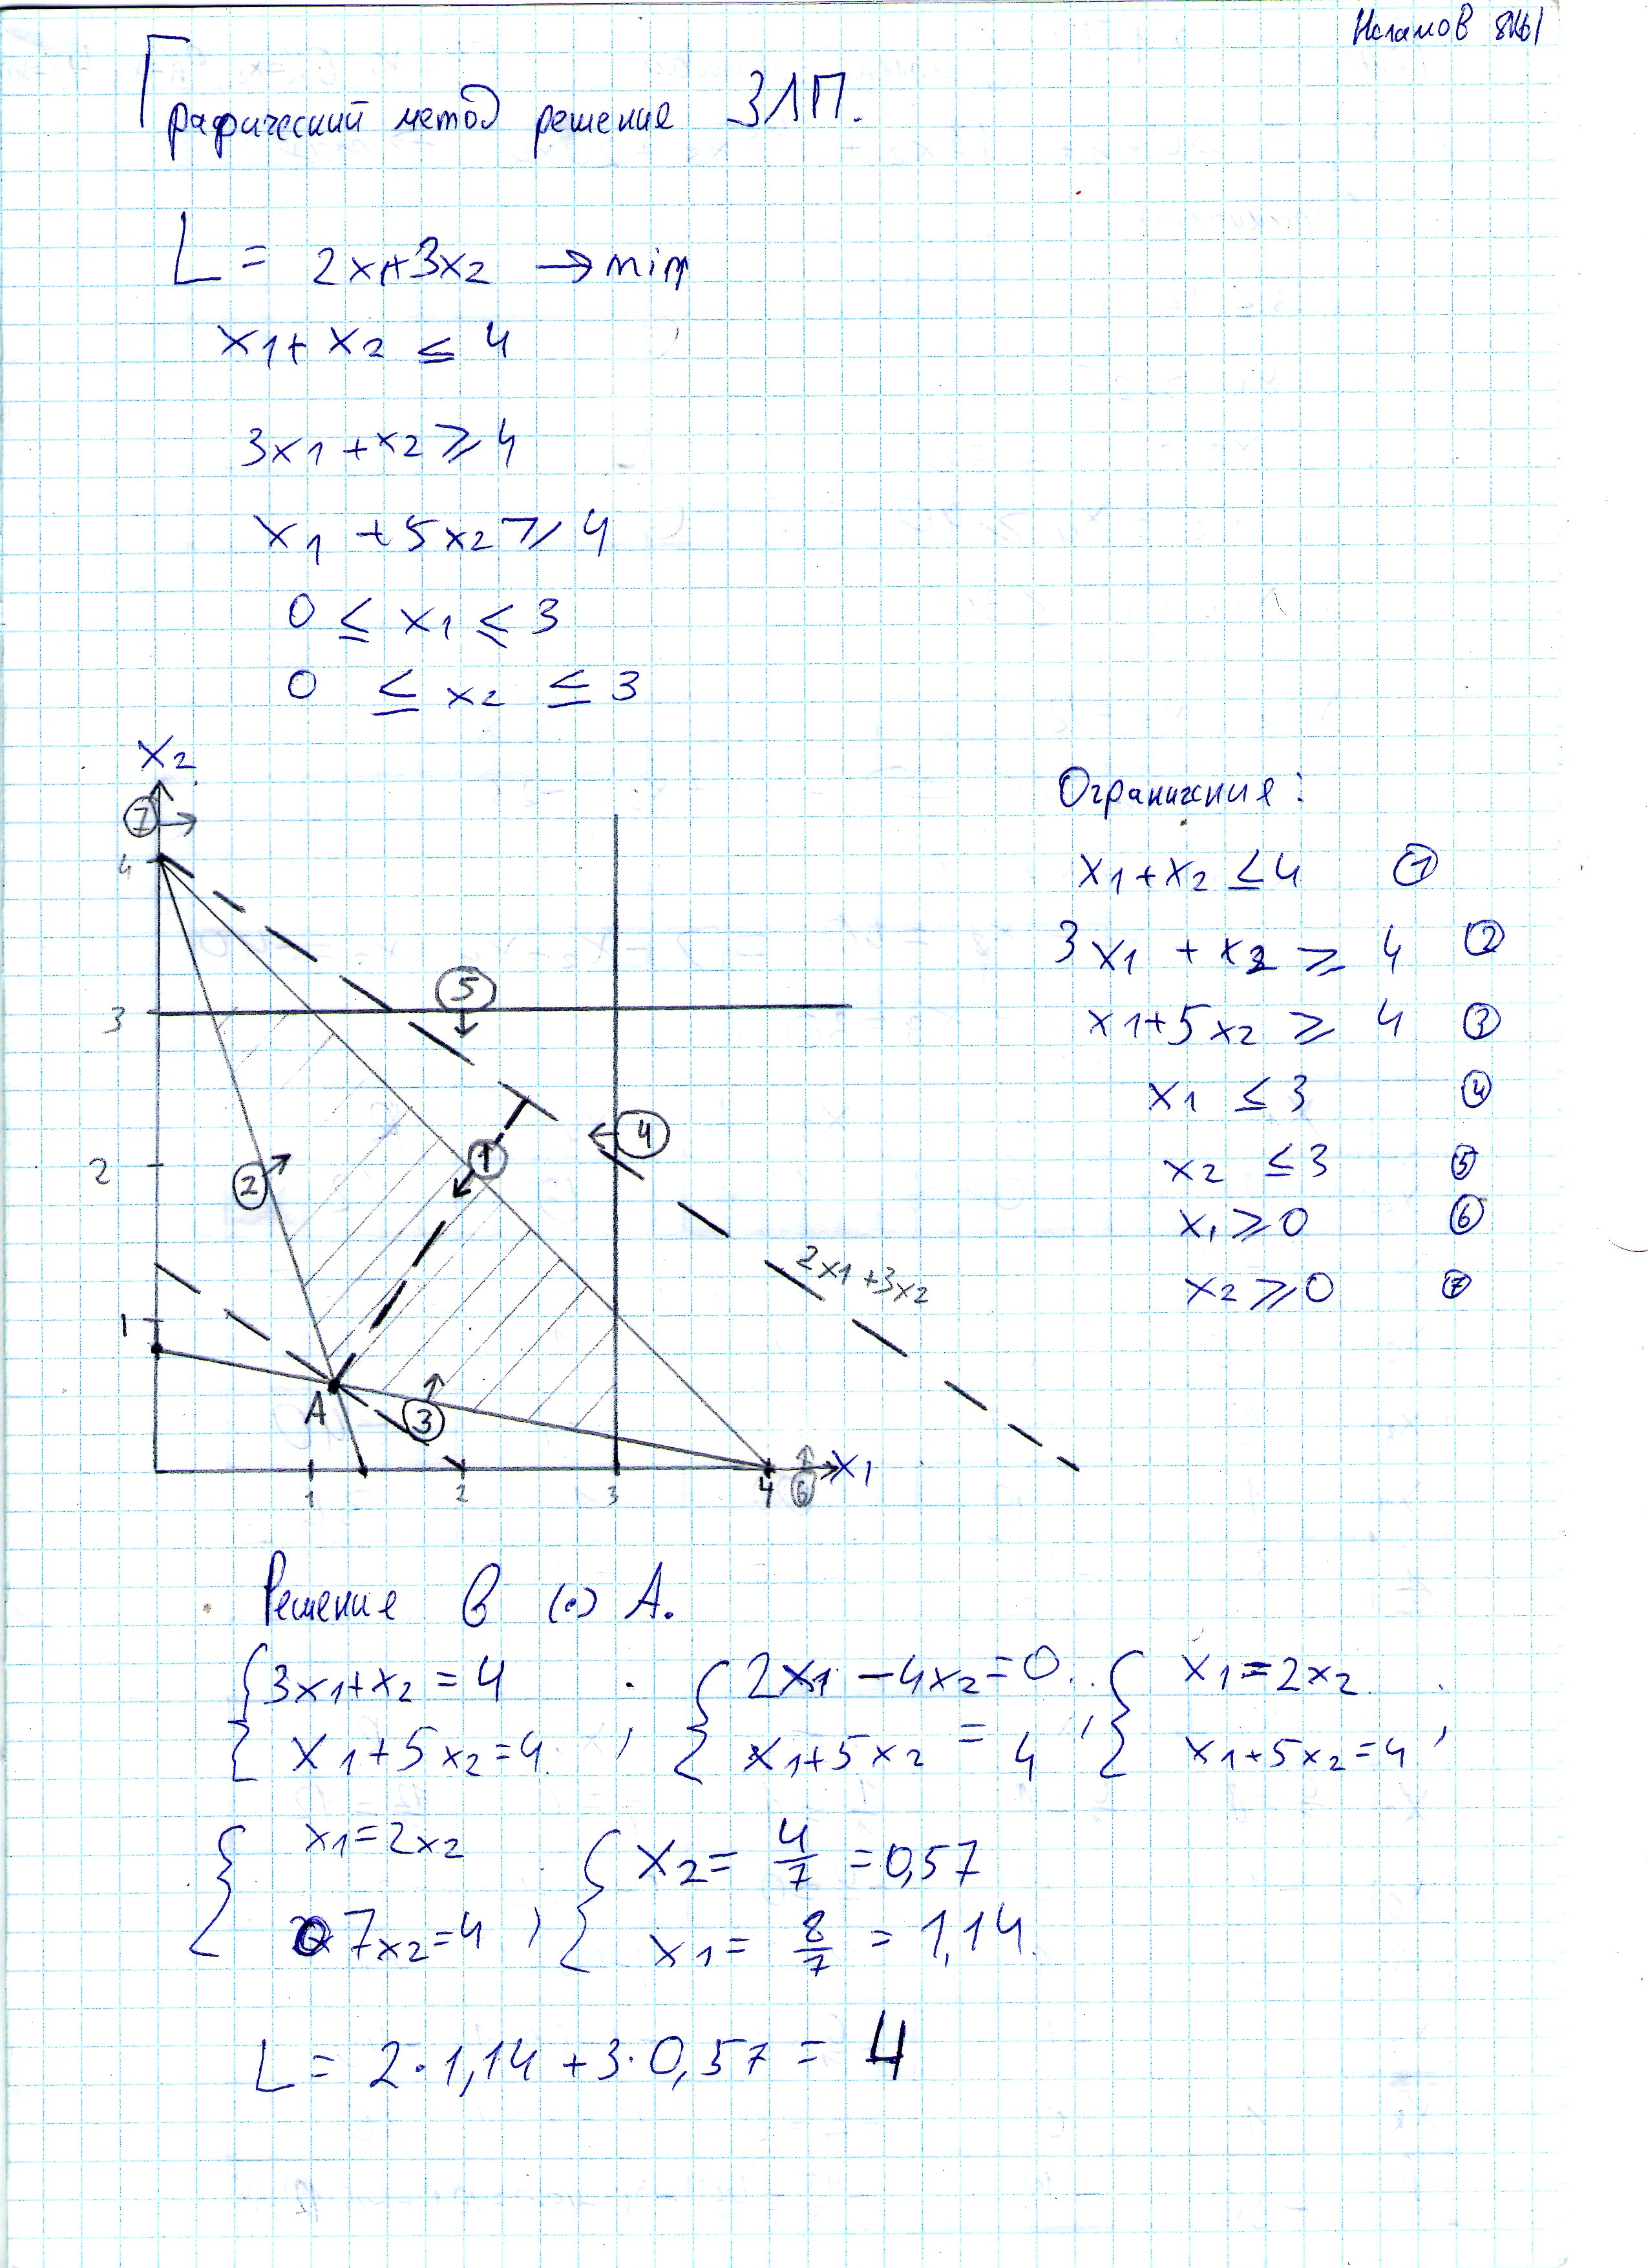 Графический метод решения ЗЛП.
L = 2x1+3x2 → min
x1+x2 ≤ 4
3x1+x2 ≥ 4
x1+5x2 ≥ 4
0 ≤ x1 ≤ 3
0 ≤ x2 ≤ 3
x2
7
4
5
3
4
1
2
2
2x1+3x2
1
A
3
x1
1
2
3
4
6
Ограничения:
x1+x2 ≤ 4 1
3x1+x2 ≥ 4 2
x1+5x2 ≥ 4 3
x1 ≤ 3 4
x2 ≤ 3 5
x1 ≥ 0 6
x2 ≥ 0 7
Решение в (·) A.
{3x1+x2=4 ; {2x1-4x2=0 ; {x1=2x2 ;
{x1+5x2=4 {x1+5x2=4 {x1+5x2=4
{x1=2x2 ; {x2=4/7=0,57
{7x2=4 {x1=8/7=1,14
L = 2·1,14+3·0,57 = 4